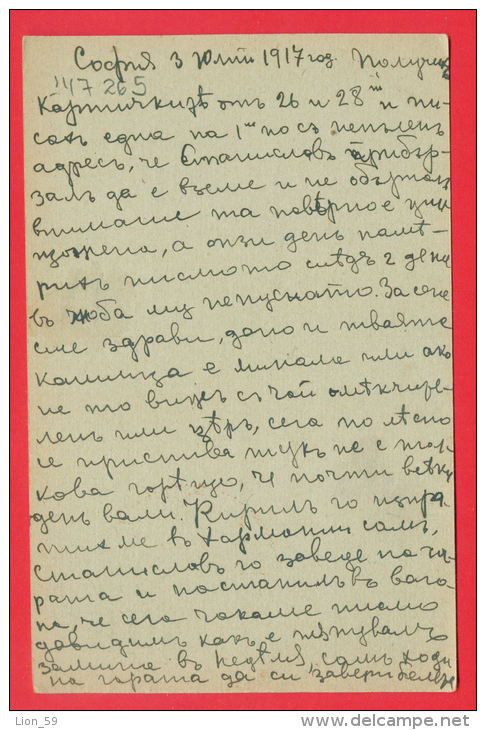 София 3 Юлий 1917 год. Получихъ
147265
Картичкитѣ отъ 26 и 28 и пи-
сахъ една на 1 но съ непъленъ
адресъ, че Станиславъ прибър-
залъ да я вземе и не обърналъ
внимание та повѣрно е уни
щожена, а онзи день намѣ-
рихъ писмото слѣдъ 2 дена
въ джоба му непуснато. За сега
сме здрави, дано и твоята
кашлица е минала или ако
не то виждъ съ чай
ленъ или цѣръ, сега по лѣсно
се пристива тукъ не е тол-
кова горѣщо, че почти всѣки
день вали. Кирилъ го изпра
тихме въ Харманли самъ,
Станиславъ го заведе на га-
рата и поставилъ въ ваго
на, че сега чакаме писмо
да видимъ какъ е пѫтувалъ
замина въ недѣля, самъ ходи
на гарата да си завери
Lion_59